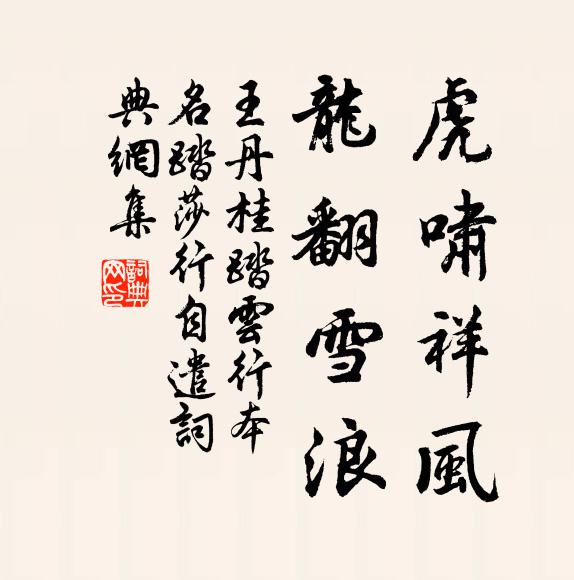 虎嘯祥風
龍翻雪浪
王丹桂踏雲行本
名踏莎行自遣詞
典網集
詞典網印